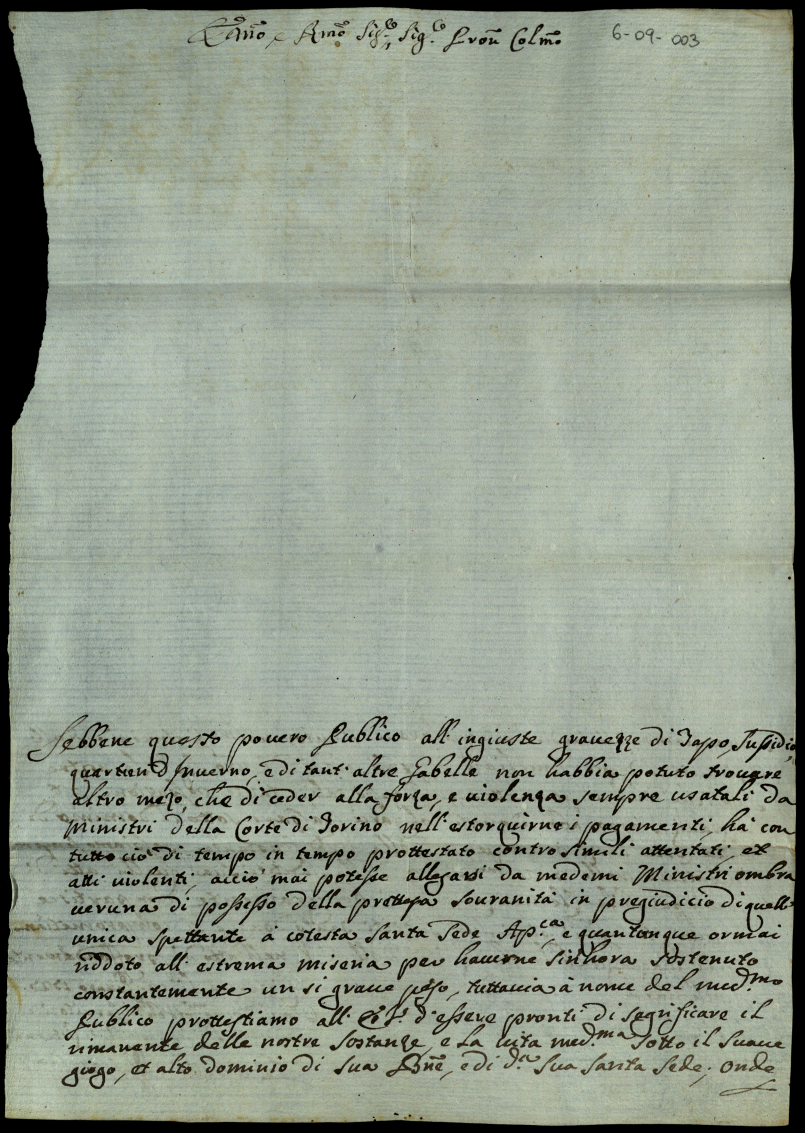 Emo, e Rmo Sigre, Sigre Pron Colmo
6-09-003
Sebbene questo povero Publico all'ingiuste gravezze di Tapo, Susidio,
quartier d'Inverno, e di tant'altre Gabelle non habbia potuto trovare
altro mezo, che di ceder alla forza, e violenza sempre usatali da
Ministri della Corte di Torino nell'estorquirne i pagamenti, hà con
tutto ciò di tempo in tempo prottestato contro simili attentati, et
atti violenti, acciò mai potesse allegarsi da medemi Ministri ombra
veruna di possesso della pretesa souranità in pregiudicio di quell'
unica spettante à cotesta Santa Sede Ap.ca, e quantunque ormai
riddoto all'estrema miseria per haverne sin'hora sostenuto
constantemente un si grave peso, tuttavia à nome del med.mo
Publico prottestiamo all' d'essere pronti di segrificare il
rimanente delle nostre sostanze, e la vita med.ma sotto il suave
giogo, et alto dominio di sua Bne, e di d.a sua santa sede; onde